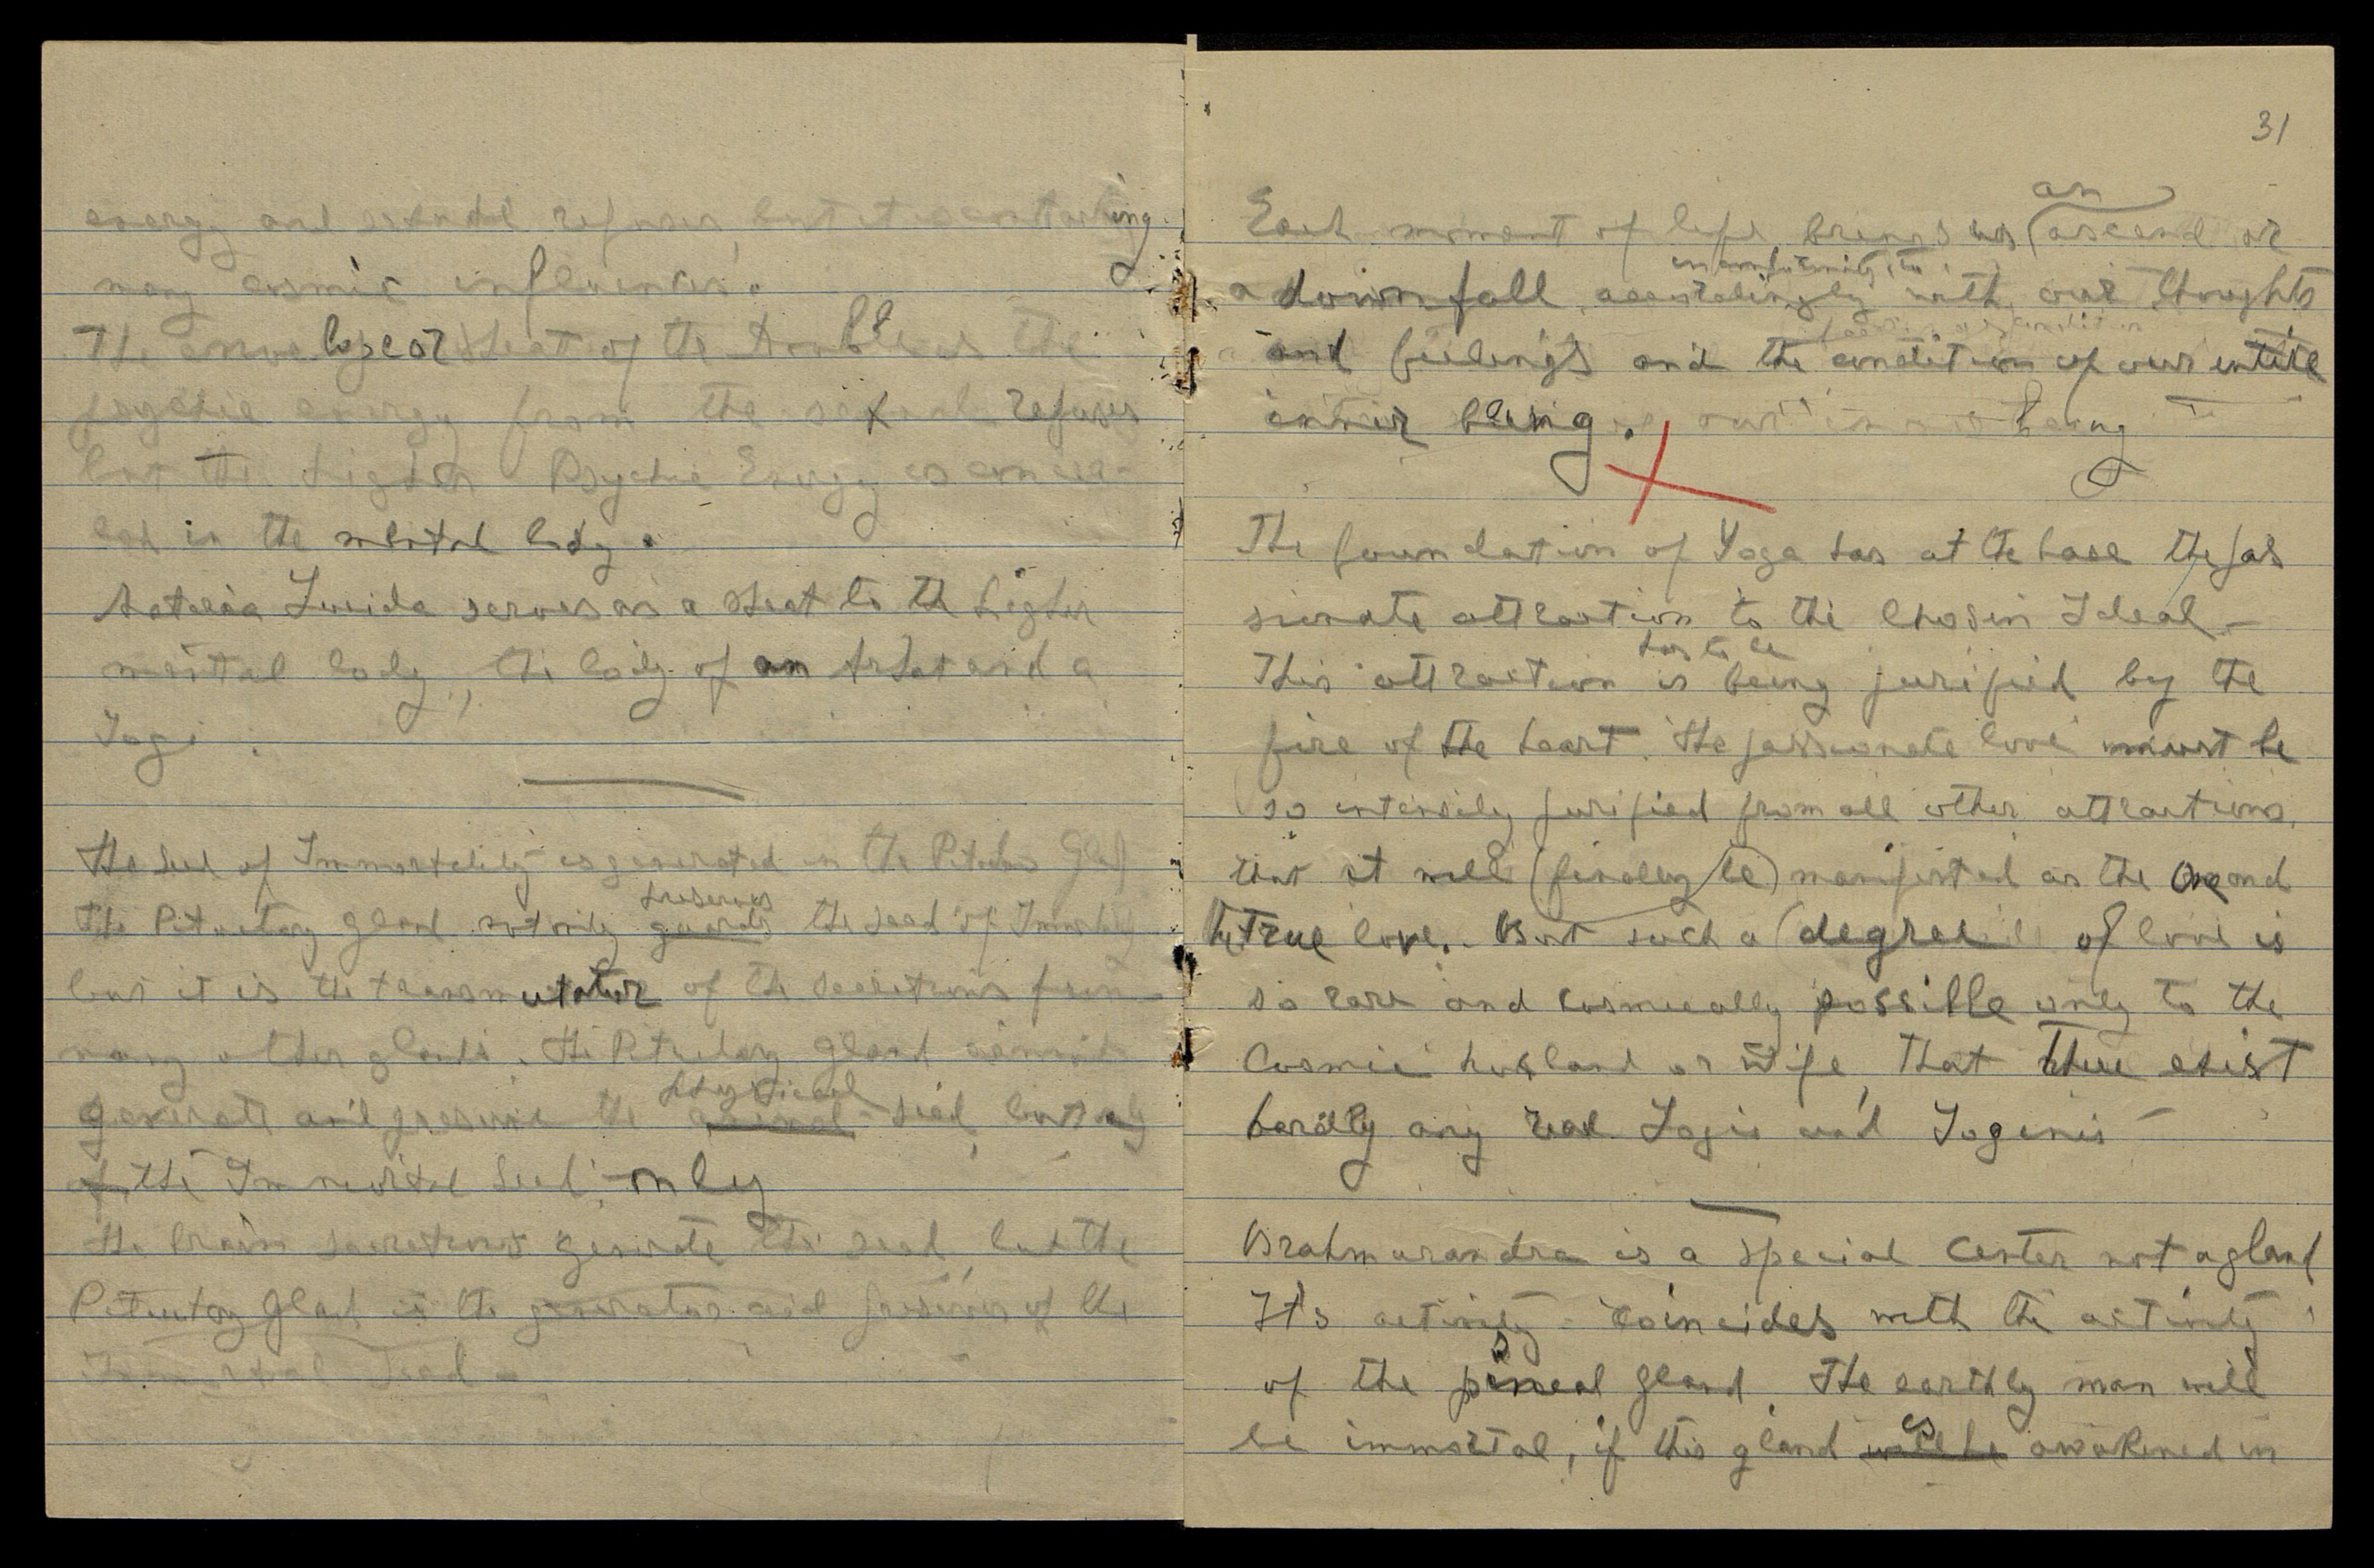 energy and refuses, but it is contacting
many cosmic influences.
The envelope or sheat of the double is the
psychic energy from the sexual refuses
but the higher Psychic Energy is
in the mental body.
Materia Lucida serves as a sheat to the higher
mental body, the body of an Arhat and a
Yogi.
The seed of Immortality is generated in the
preserves
The Pituitary gland not only guards the seed of
but it is the transmutator of the secretions from
many other glands. The Pituitary gland cannot
physical
generate and preserve the seed, but only
of the Immortal Seed only
The brain secretions generate the seed, but the
Pituitary Gland is the generator and preserver of the
Immortal Seed
31
an
Each moment of life brings us ascend or
in conformity to
a downfall, accordingly with our thoughts
and feelings and the condition of our entire
entier being. being
The foundation of Yoga has at the base the pas
sionate attraction to the chosen Ideal –
has to be
This attraction is being purified by the
fire of the heart. The passionate love must be
so intensely purified from all other attractions,
that it will (finally be) manifested as the One and
the True love. But such a degree of love is
so rare and cosmically possible only to the
Cosmic husband or wife, that there exist
hardly any real Yogis and Yoginis –
Brahmarandra is a special center not a gland
It's activity coincides with the activity
of the pineal gland. The earthly man will
is
be immortal, if this gland will be awakened in